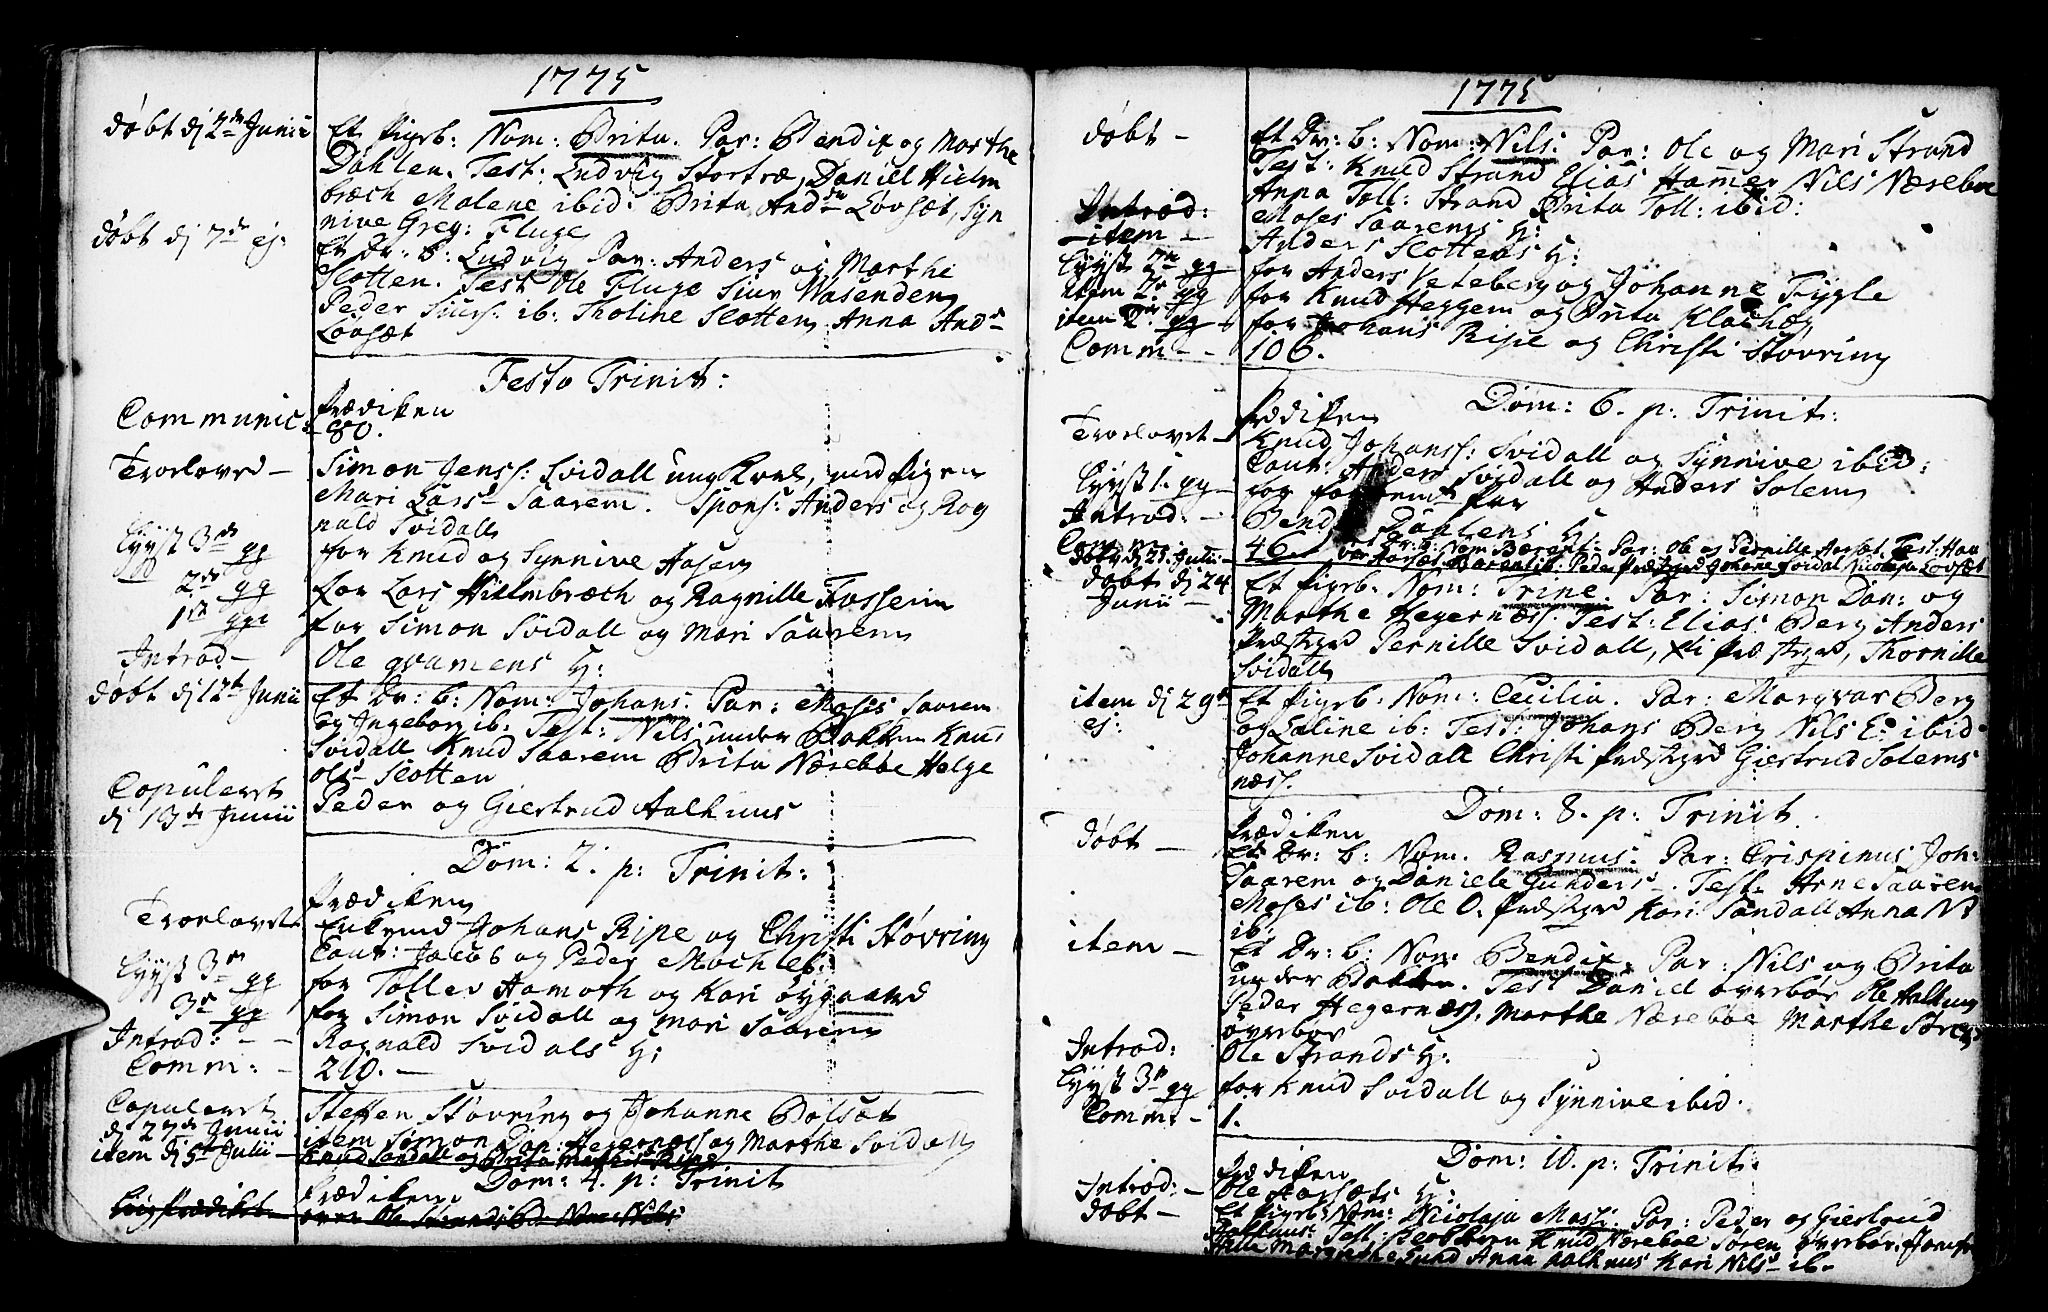 1775
døbt dj 2de Junii Et Pigeb: Nom: Brita. Par: Bendix og Marthe
Dahlen. Test: Ludvig Stortræ, Daniel Hielm
bræch Malene ibid: Brita Andsdr Løvsæt, Syn
nive Greg: Fluge
døbt dj 7de ej: Et Dr: B: Ludvig Par: Anders og Marthe
Slotten. Test Ole Fluge Siur Wasenden
Peder Siurs: ib: Tholine Slotten Anna Andsr
Løvsæt
Festo Trinit:
Prædiken
Communic: 80.
Troeloved – Simon Jenss: Svidall ung Karl, med Pigen
Mari Larsdr Saarem. Spons: Anders og Rog
nald Svidall
Lyyst 3de gg for Knud og Synnive Aasen
2de gg for Lars Hielmbræch og Ragnille Fosseim
1ste gg for Simon Svidall og Mari Saarem
Introd – Ole Qvamens H:
døbt dj 12te Junii Et Dr: B: Nom: Johans. Par: Moses Saarem
og Ingeborg ib: Test: Nils under Bakken Knud
Svidall Knud Saarem Brita Nærebøe Helge
Ols– Slotten
Copuleret dj 13de Junii Peder og Giertrud Aalhuus
Dom: 2. p: Trinit:
Prædiken
Troelovet Enkemd Johans Ripe og Christi Støvring
Caut: Jacob og Peder Mochleb:
Lyyst 3de gg for Tollev Aamoth og Kari Øygaard
3de gg for Simon Svidall og Mari Saarem
Introd: – – Ragnald Svidals H:
Comm: – 210. –
Copuleret d 27de Junii Steffen Støvring og Johanne Bolsæt
item dj 5te Julii – item Simon Dan: Hegernæss og Marthe Svidall
Knud Sandall og Brita Ripe
Dom: 4. p: Trinit
Prædiken
1775
døbt – Et Dr: b: Nom: Nils. Par: Ole og Mari Strand
Test: Knud Strand Elias Hammer Nils Nærebøe
Anna Toll: Strand Brita Toll: ibid:
Introd: Moses Saarems H:
– item – Anders Slottens H:
Lyyst 2de gg for Anders Veteberg og Johanne Fygle
item 2de gg for Knud Heggem og Brita Klachæg
item 2de gg for Johans Ripe og Christi Støvring
Comm – – 106.
Dom: 6. p: Trinit:
Prædiken
Troelovet – Knud Johanss: Svidall og Synnive ibid:
Caut: Anders Svidall og Anders Solem
Lyyst 1. gg – for forbemte Par
Introd: – Bendix Dahlens H:
Comm: 46.
døbt dj 25 Julii – Dr: b: Nom Bærent. Par: Ole og Pernille Aarsæt. Test: Han
Peder Præstegrd Johane Svidal Nicolaja Løvsæt
døbt dj 24 Junii – Et Pigeb. Nom: Trine. Par: Simon Dan: og
Marthe Hegernæss. Test: Elias Berg Anders
Præstegrd Pernille Svidall, Præstegrd, Thornille
Svidall
item dj 29de ej: Et Pigeb: Nom: Cecilia. Par: Margvar Berg
og Eline ib: Test: Johans Berg Nils E: ibid
Johanne Svidall Christi Præstegrd Giertrud Solems
næss.
Dom: 8. p: Trinit.
Prædiken
døbt – Et Dr: b: Nom. Rasmus. Par: Crispinus Joh:
Saarem og Daniele Gunders –. Test: Arne Saarem
Moses ib: Ole O. Præstegrd Kari Sandall Anna N
ib:
item – Et Dr: b: Nom: Bendix. Par: Nils og Brita
under Bakken. Test Daniel Øvrebøe Ole Aalhuus
Peder Hegernæss. Marthe Nærebøe Marthe Sørens
Øvrebøe
Introd: Ole Strands H:
Lyyst 3de gg for Knud Svidall og Synnive ibid.
Comm: – 1.
Dom: 10. p: Trinit:
Prædiken
Introd: – Ole Aarsæts H:
døbt – Et Pigeb: Nom: Nicolaja Mossi. Par: Peder og Giertrud
Aalhuus: Test: Knud Nærebøe Søren Øvrebøe Jomfr
Margrethe Lund Anna Aalhuus Kari Nils– ib–